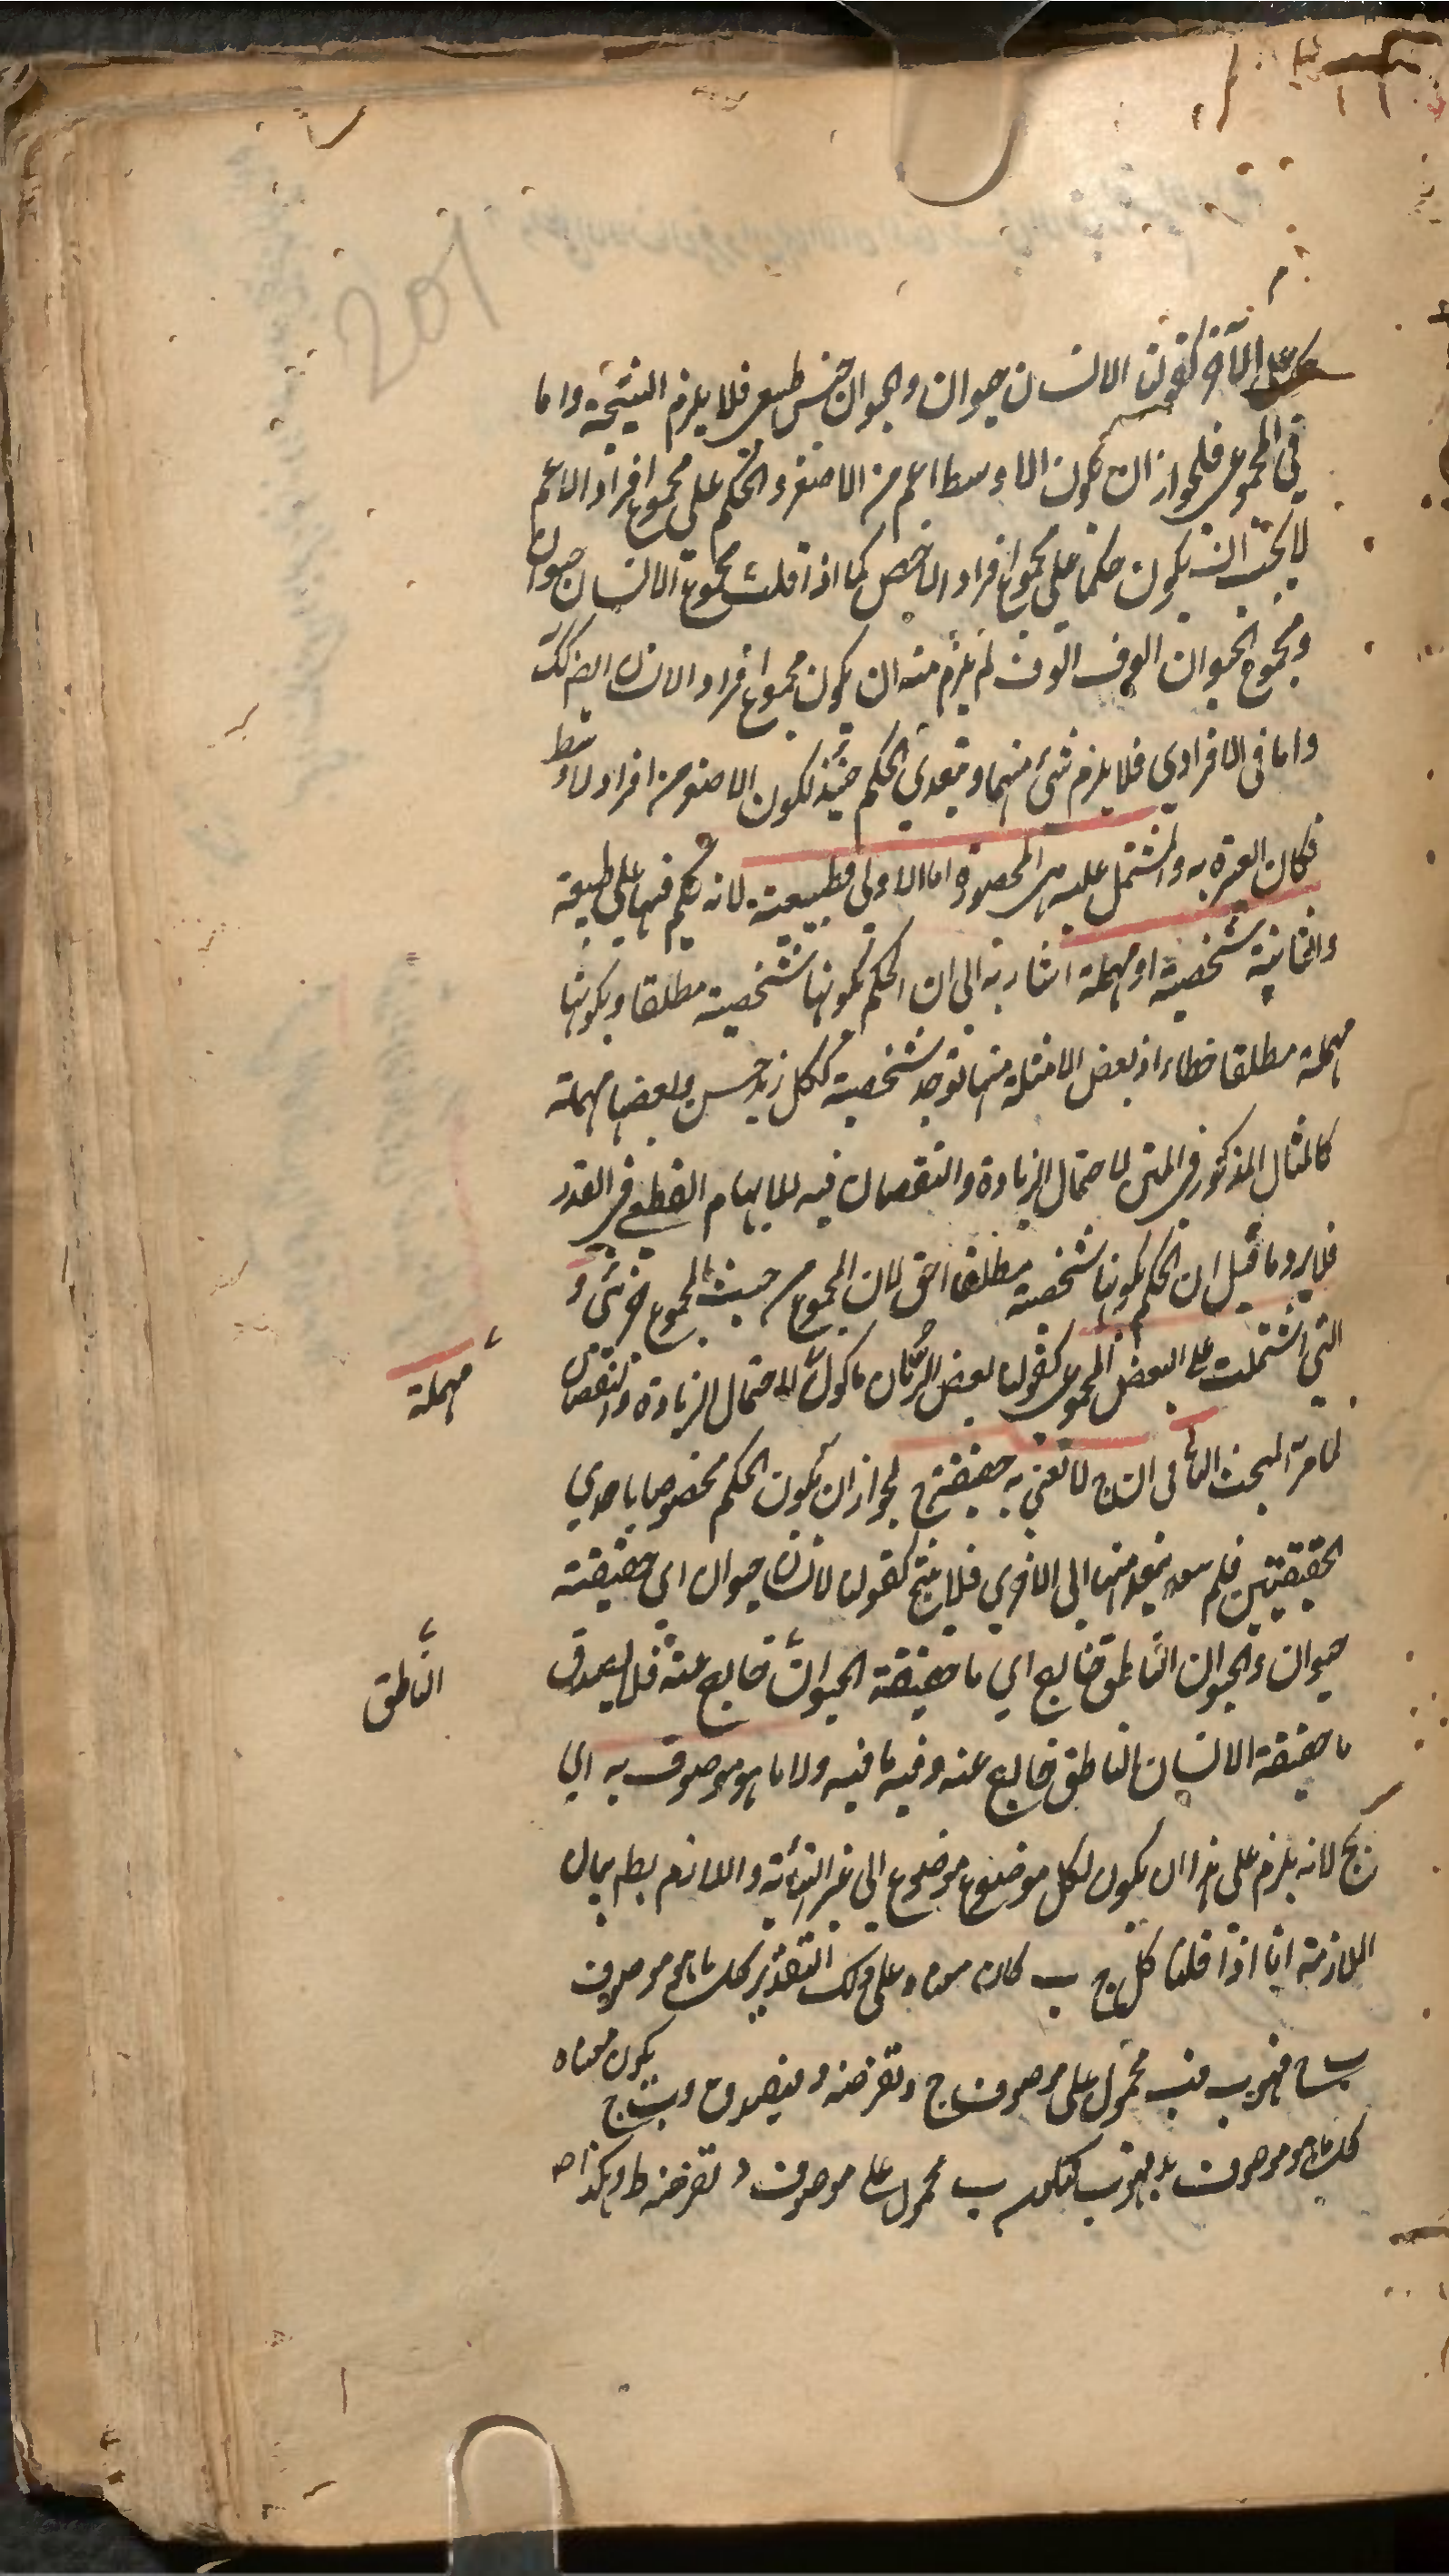 على الآخر كقولنا الانسان حيوان والحيوان جنس طبيعى فلا يلزم النتيجة واما
فى المجموعى فلجواز ان يكون الاوسط اعم من الاصغر والحكم على مجموع افراد الاعم
لا يجب ان يكون حكما على مجموع افراد الاخص كما اذا قلت مجموع الانسان حيوان
ومجموع الحيوان الوف الوف لم يلزم منه ان يكون مجموع افراد الانسان ايضا كك
واما فى الافرادى فلا يلزم شئ منهما و يتعدى الحكم حينئذ لكون الاصغر من افراد الاوسط
فكان العبرة به والمشتمل عليه هى المحصورة اما الاولى فطبيعية لانه حكم فيها على طبيعة
والثانية شخصية او مهملة اشار به الى ان الحكم بكونها شخصية مطلقا وبكونها
مهملة مطلقا خطاء اذ بعض الامثلة منها توجد شخصية ككل زيد حسن وبعضها مهملة
كالمثال المذكور فى المتن لاحتمال الزيادة والنقصان فيه للابهام القطعى فى القدر
فلا يرد ما قيل ان الحكم بكونها شخصية مطلقا احق لان المجموع من حيث المجموع جزئى و
التى اشتملت على البعض المجموعى كقولنا بعض الرمان ماكول لاحتمال الزيادة والنقصان
مهملة
لما مر المبحث الثانى ان ج لا نعنى به حقيقة ج لجواز ان يكون الحكم مخصوصا باحدى
الحقيقتين فلم يتعد منها الى الاخرى فلا ينتج كقولنا الانسان حيوان اى حقيقته
حيوان والحيوان الناطق خارج اى ما حقيقة الحيوان خارج عنه فلا يصدق
الناطق
ما حقيقة الانسان الناطق خارج عنه وفيه ما فيه ولا ما هو موصوف به اى
بج لانه يلزم على هذا ان يكون لكل موضوع موضوع الى غير النهاية واللازم بط بيان
الملازمة انا اذا قلنا كل ج ب كان معناه على ذلك التقدير كل ما هو موصوف
ب محمول على موصوف ج ونفرضه د فيصدق د ج يكون معناه
كل ما هو موصوف ب محمول على موصوف د نفرضه ط وهكذا